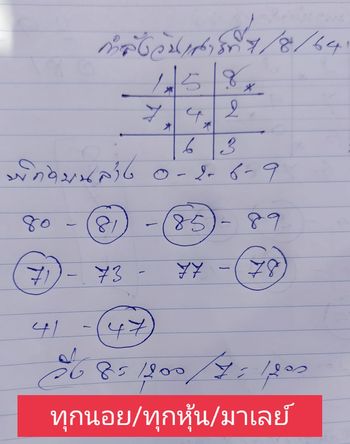 กำลังวันเสาร์ที่ 7/8/64
1 5 8
7 4 2
6 3
0-2-6-9
80 - 81 - 85 - 89
71 - 73 - 77 - 78
41 - 47
วิ่ง 8 = 1,200 / 7 = 1,200
ทุกนอย/ทุกหุ้น/มาเลย์